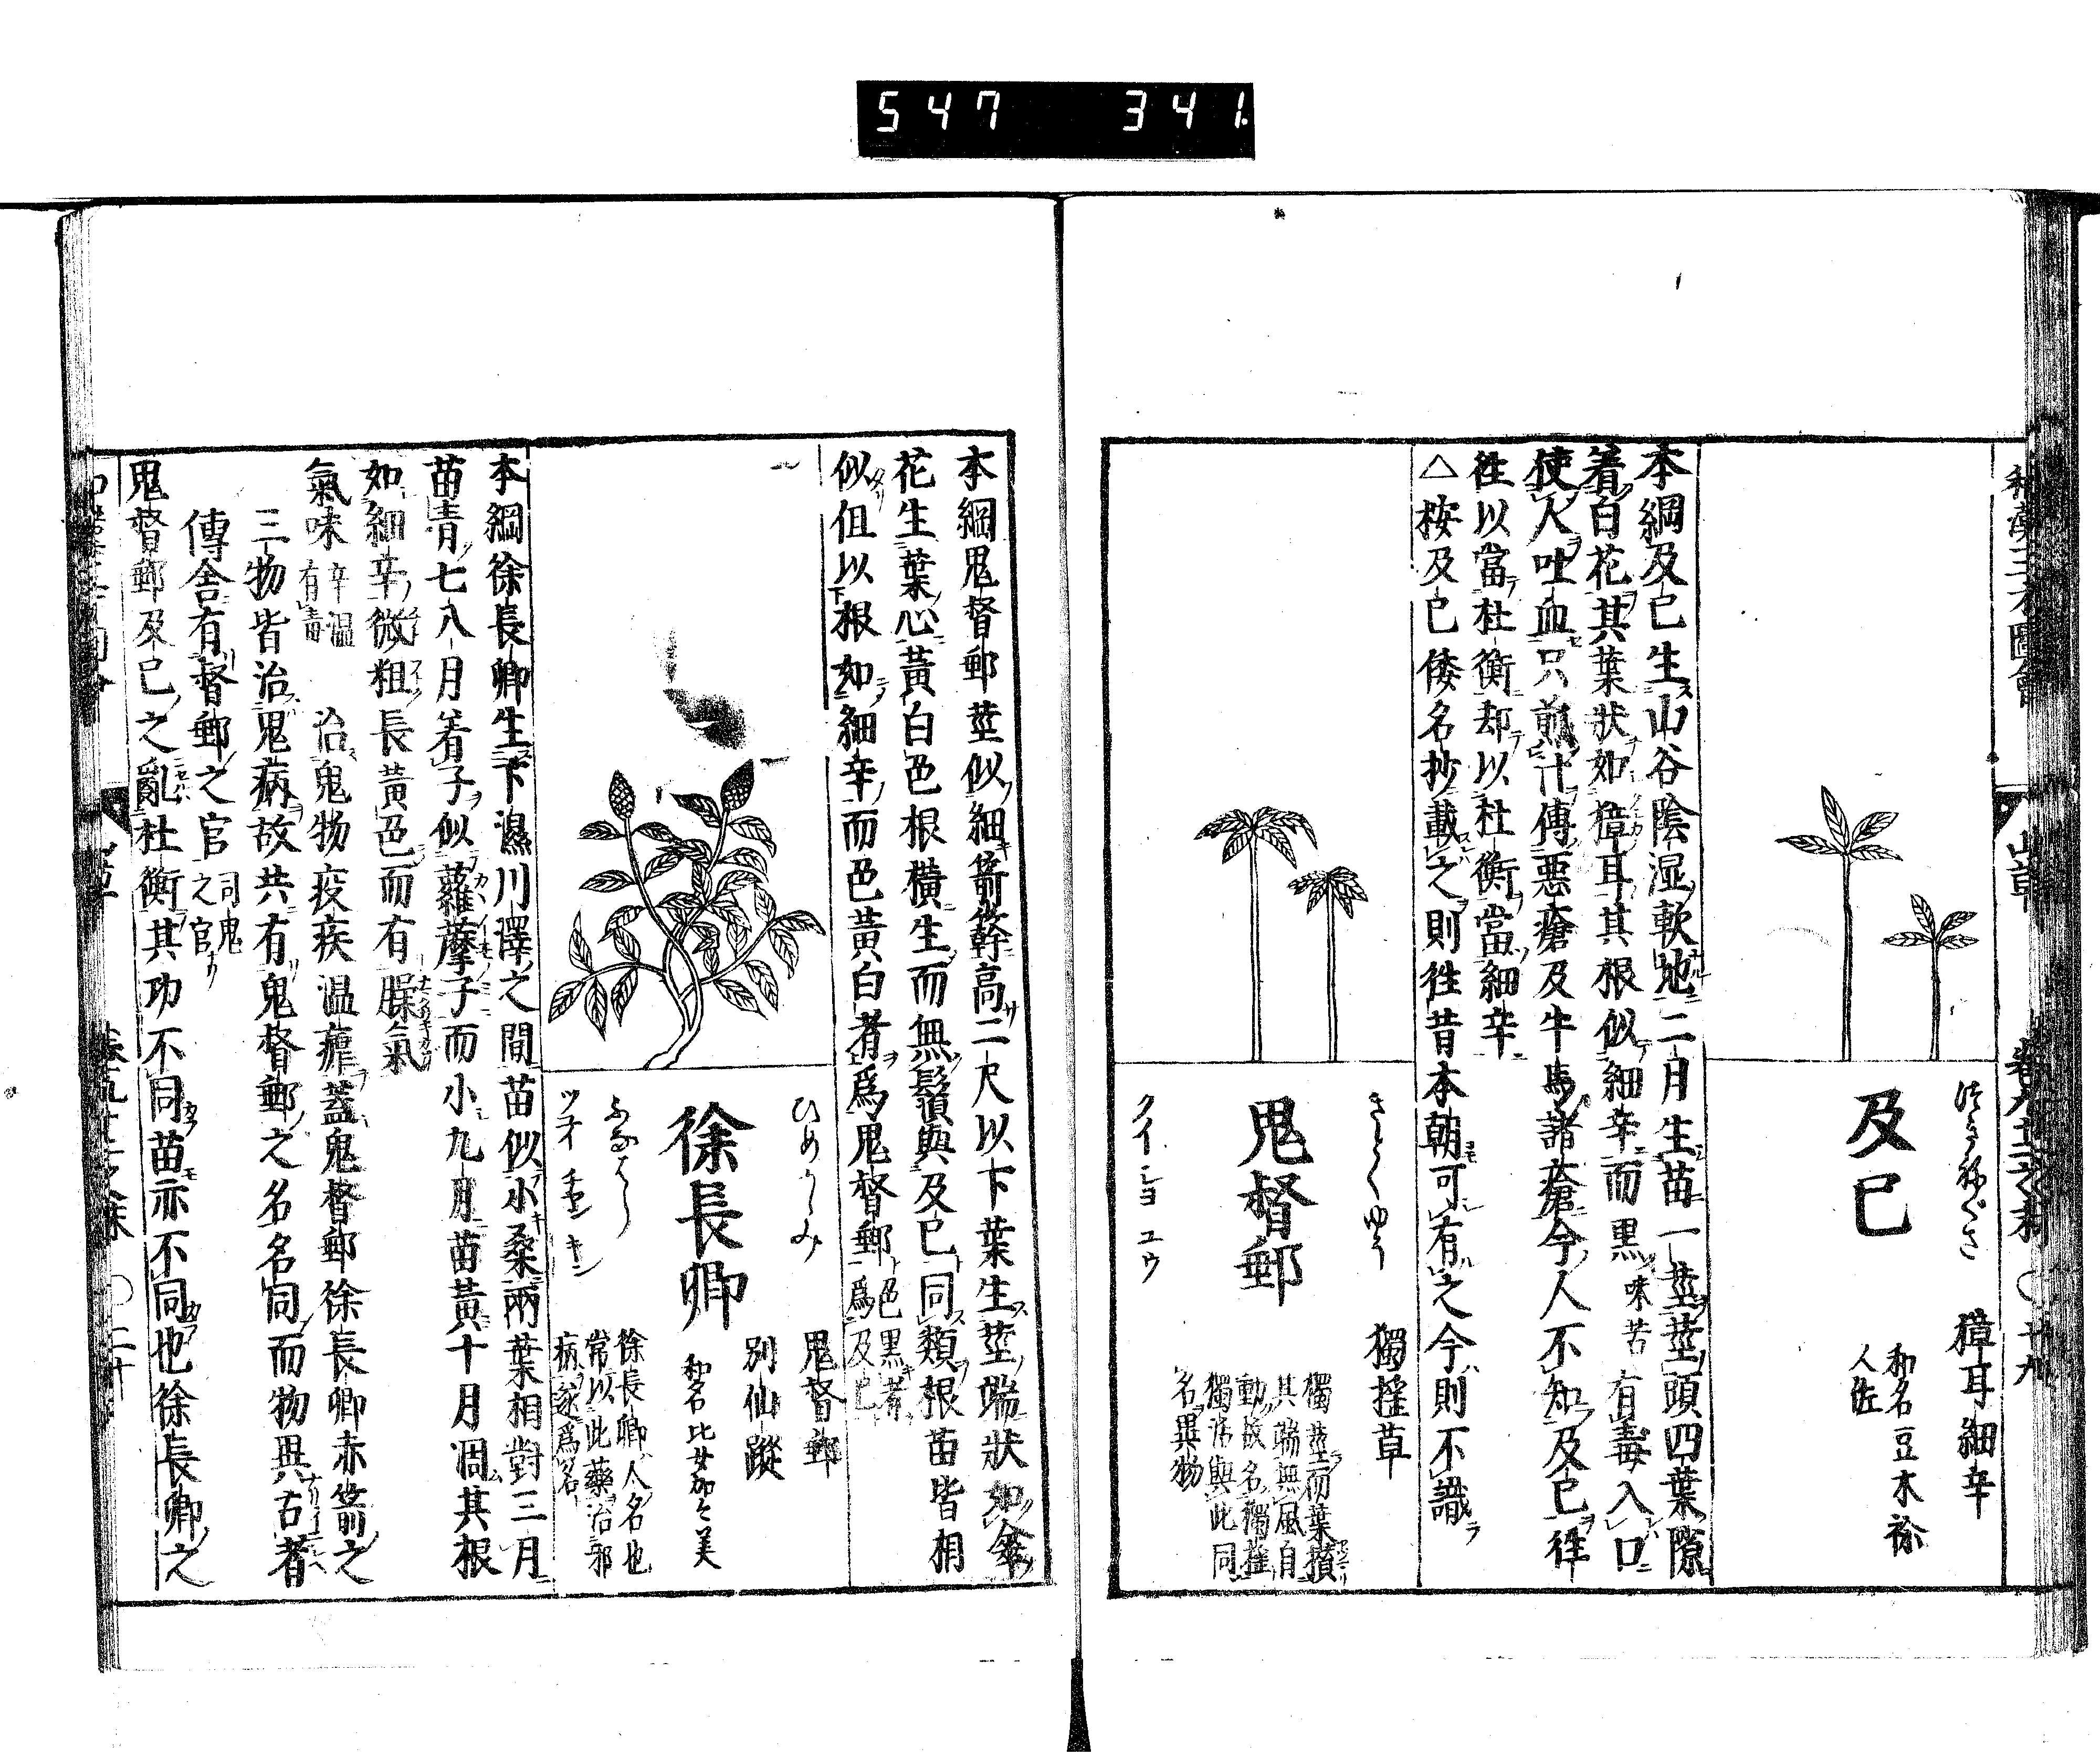 547 341
和漢三才圖會 山草 卷九十二之末 〇十九
つきねぐさ
及已
獐耳細辛
和名豆木禰
久佐
本綱及已生山谷陰湿軟地二月生苗一莖莖頭四葉隙
着白花其葉狀如獐耳其根似細辛而黒味苦有毒入口
使人吐血只煎汁傅惡瘡及牛馬諸瘡今人不知及已徃
徃以當杜衡却以杜衡當細辛
△桉及已倭名抄載之則徃昔本朝可有之今則不識
きとくゆう
鬼督郵
クイ ショ ユウ
獨搖草
獨莖而葉攅
其端無風自
動故名獨搖
獨活與此同
名異物
本綱鬼督郵莖似細箭簳高二尺以下葉生莖端狀如傘
花生葉心黃白色根橫生而無鬚與及已同類根苗皆相
似但以根如細辛而色黃白者爲鬼督郵色黒者
爲及已
ひめかゝみ
徐長卿
ツイ チヤン キン
鬼督郵
別仙蹤
和名比女加々美
徐長卿人名也
常以此藥治邪
病遂爲名
本綱徐長卿生下濕川澤之間苗似小桑兩葉相對三月
苗青七八月着子似蘿藦子而小九月苗黃十月凋其根
如細辛微粗長黃色而有臊氣
氣味辛温
有毒 治鬼物疫疾温瘧蓋鬼督郵徐長卿赤箭之
三物皆治鬼病故共有鬼督郵之名名同而物異古者
傳舎有督郵之官司鬼
之官
鬼督郵及已之亂杜衡其功不同苗亦不同也徐長卿之